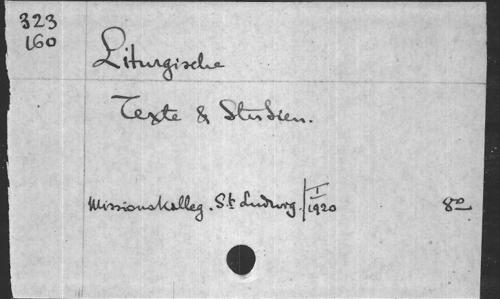 323
160
Liturgische
Texte & Studien.
Missionskolleg. St. Ludwig. I/1920 8º